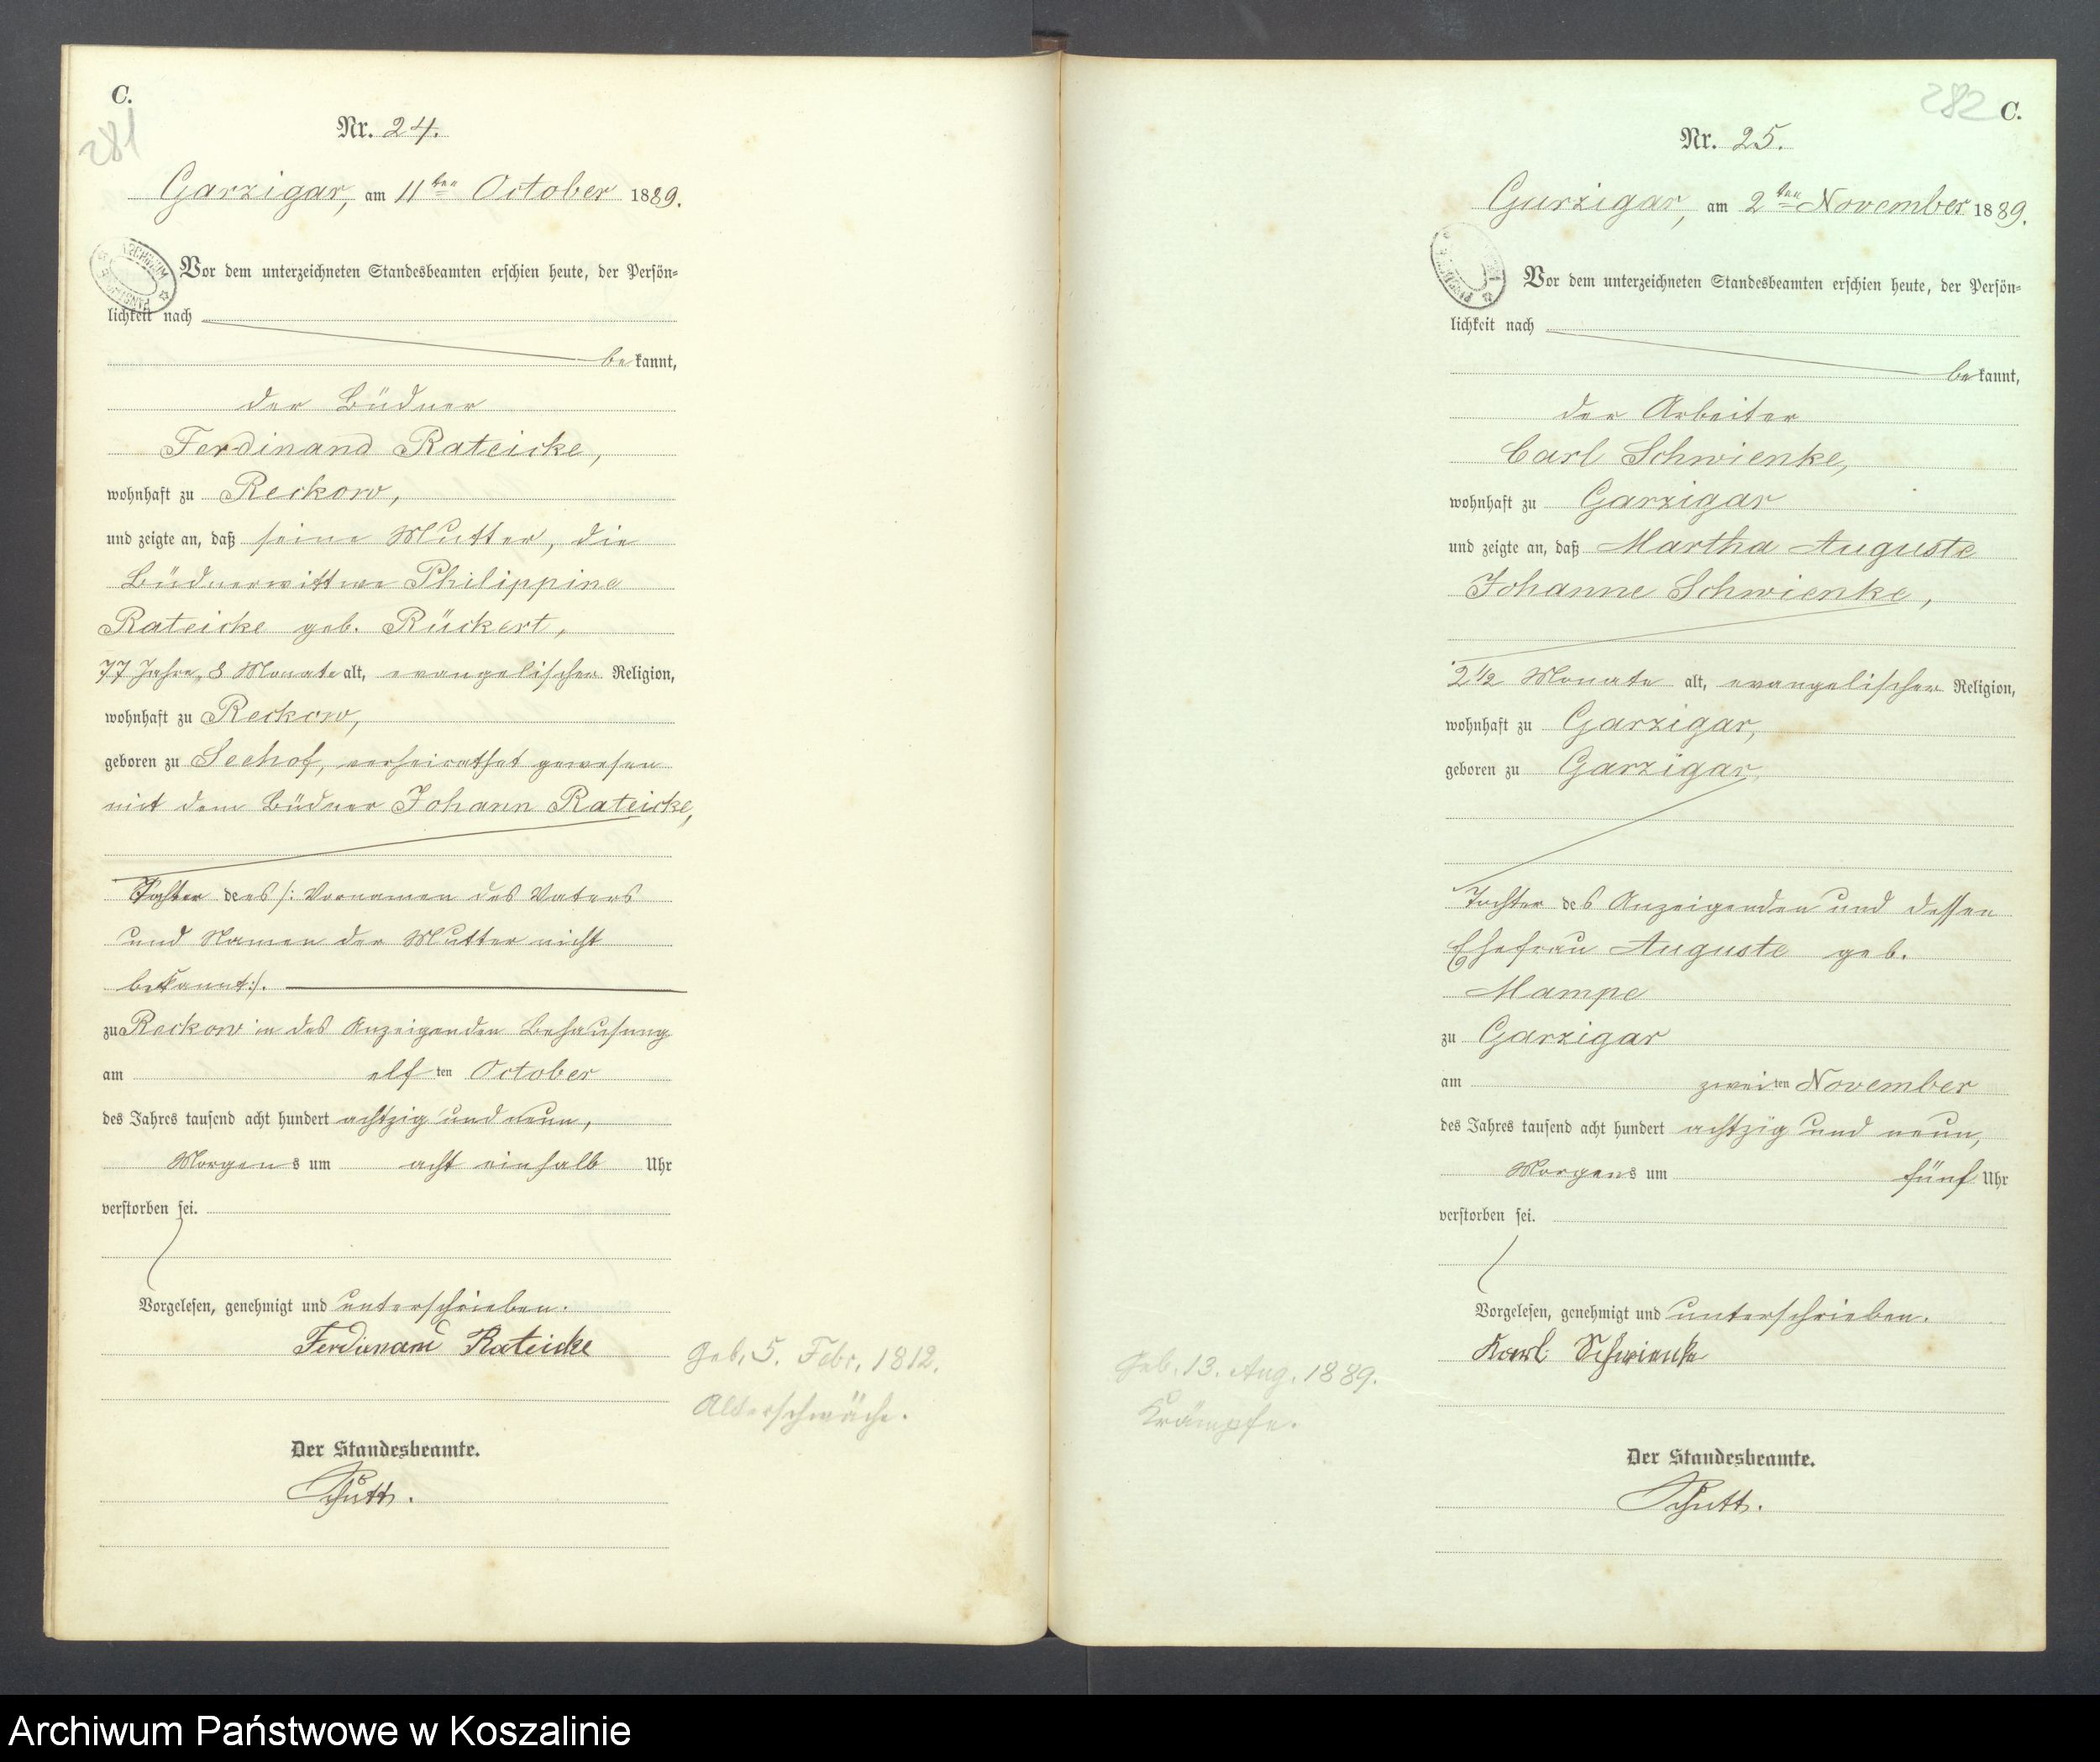 C.
281
Nr. 24.
Garzigar, am 11ten October 1889.
Vor dem unterzeichneten Standesbeamten erschien heute, der Persön-
lichkeit nach
bekannt,
der Büdner
Ferdinand Rateicke,
wohnhaft zu Reckow,
und zeigte an, daß seine Mutter, die
Büdnerwittwe Philippine
Rateicke geb. Rückert,
77 Jahre, 8 Monate alt, evangelischer Religion,
wohnhaft zu Reckow,
geboren zu Seehof, verheirathet gewesen
mit dem Büdner Johann Rateicke,
Tochter des /: Vornamen des Vaters
und Namen der Mutter nicht
bekannt:/.
zu Reckow in des Anzeigenden Behausung
am elften October
des Jahres tausend acht hundert achtzig und neun,
Morgens um acht einhalb Uhr
verstorben sei.
Vorgelesen, genehmigt und unterschrieben.
Ferdinand Rateicke
Geb. 5. Febr. 1812.
Alterschwäche.
Der Standesbeamte.
Schütt.
282 C.
Nr. 25.
Garzigar, am 2ten November 1889.
Vor dem unterzeichneten Standesbeamten erschien heute, der Persön-
lichkeit nach
bekannt,
der Arbeiter
Carl Schwienke,
wohnhaft zu Garzigar
und zeigte an, daß Martha Auguste
Johanne Schwienke,
2 1/2 Monate alt, evangelischer Religion,
wohnhaft zu Garzigar,
geboren zu Garzigar,
Tochter des Anzeigenden und dessen
Ehefrau Auguste geb.
Mampe
zu Garzigar
am zweiten November
des Jahres tausend acht hundert achtzig und neun,
Morgens um fünf Uhr
verstorben sei.
Vorgelesen, genehmigt und unterschrieben.
Karl Schwienke
Geb. 13. Aug. 1889.
Krämpfe.
Der Standesbeamte.
Schütt.
Archiwum Państwowe w Koszalinie